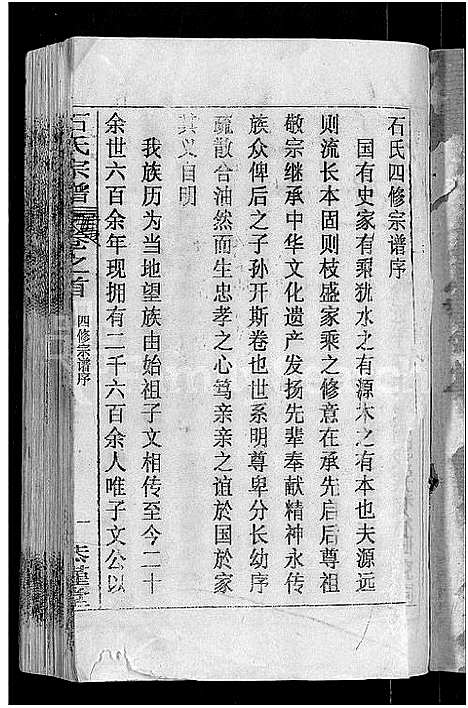 石氏四修宗谱序
国有史家有乘犹水之有源木之有本也夫源远
则流长本固则枝盛家乘之修意在承先启后尊祖
敬宗继承中华文化遗产发扬先辈奉献精神永传
族众俾后之子孙开斯卷也世系明尊卑分长幼序
疏散合油然而生忠孝之心笃亲亲之谊於国於家
其义自明
我族历为当地望族由始祖子文相传至今二十
余世六百余年现拥有二千六百余人唯子文公以
石氏宗谱 卷之首 四修宗谱序 一